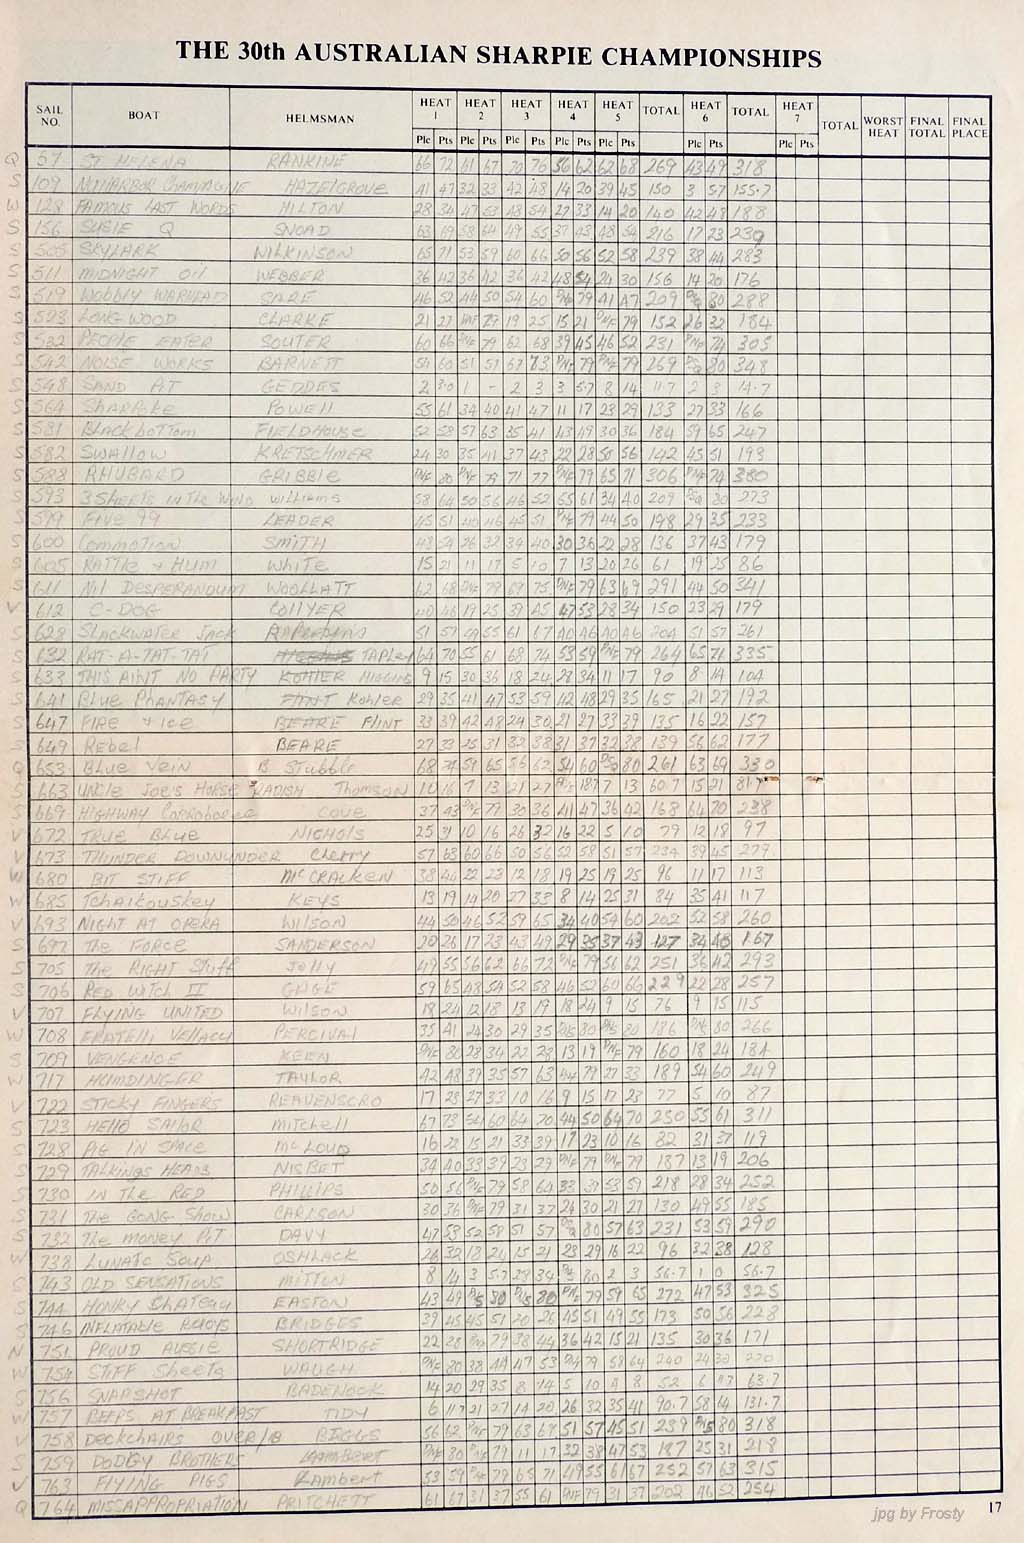 THE 30th AUSTRALIAN SHARPIE CHAMPIONSHIPS
SAIL NO. BOAT HELMSMAN HEAT 1 HEAT 2 HEAT 3 HEAT 4 HEAT 5 TOTAL HEAT 6 TOTAL HEAT 7 TOTAL WORST HEAT FINAL TOTAL FINAL PLACE
Plc Pts Plc Pts Plc Pts Plc Pts Plc Pts Plc Pts Plc Pts
Q 57 ST HELENA RANKINE 66 72 61 67 70 76 56 62 62 68 269 43 49 318
S 109 HAZELGROVE 41 47 32 33 42 48 14 20 39 45 150 3 57 155.7
W 128 FAMOUS LAST WORDS HILTON 28 34 47 53 48 54 27 33 14 20 140 42 48 188
S 156 SUSIE Q SNOAD 49 55 216 17 23 239
S 505 SKYLARK WILKINSON 65 71 53 59 60 66 50 56 52 58 239 38 44 283
S 511 MIDNIGHT OIL WEBBER 36 42 36 42 36 42 48 54 24 30 156 14 20 176
S 519 WOBBLY WARHEAD SARE 46 52 44 50 54 60 79 41 47 209 80 288
S 523 LONGWOOD CLARKE 21 27 79 19 25 15 21 DNF 79 152 26 32 184
S 532 PEOPLE EATER SOUTER 60 66 79 62 68 39 45 46 52 231 74 305
S 542 NOISE WORKS BARNETT 54 60 51 57 67 73 79 79 269 80 348
S 548 SAND AT GEDDES 2 3.0 1 - 2 3 3 5.7 8 14 11.7 2 3 14.7
S 564 Sharpoke POWELL 55 61 34 40 41 47 11 17 23 29 133 27 33 166
S 581 Blackbottom FIELDHOUSE 52 58 57 63 35 41 43 49 30 36 184 59 65 247
S 582 SWALLOW KRETSCHMER 24 30 35 41 37 43 22 28 50 56 142 45 51 193
S 588 RHUBARD GRIBBLE DNF 80 DNF 79 71 77 DNF 79 65 71 306 DNF 74 380
S 593 3 SHEETS IN THE WIND Williams 58 64 50 56 46 52 55 61 34 40 209 273
S 599 FIVE 99 LEADER 45 51 40 46 45 51 DNF 79 44 50 198 29 35 233
S 600 Commotion SMITH 26 32 34 40 30 36 22 28 136 37 43 179
S 605 RATTLE + HUM White 15 21 11 17 5 10 7 13 20 26 61 19 25 86
S 611 Nil DESPERANDUM WOOLLATT 62 68 79 69 75 DNF 79 63 69 291 44 50 341
V 612 C-DOG COLLYER 40 46 19 25 39 45 47 53 28 34 150 23 29 179
S 628 SLACKWATER JACK 51 57 49 55 61 67 40 46 40 46 204 51 57 261
S 632 RAT-A-TAT-TAT TAPLEY 64 70 55 61 68 74 53 59 DNF 79 264 65 71 335
S 633 THIS AINT NO PARTY KOHLER HIGGINS 9 15 30 36 18 24 28 34 11 17 90 8 14 104
S 641 Blue PHANTASY FLINT Kohler 29 35 41 47 53 59 42 48 29 35 165 21 27 192
S 647 FIRE + ICE BEARE FLINT 33 39 42 48 24 30 21 27 33 39 135 16 22 157
S 649 Rebel BEARE 27 33 25 31 32 38 31 37 32 38 139 56 62 177
Q 653 BLUE VEIN B Stubble 68 74 59 65 56 62 54 60 80 261 63 69 330
S 663 UNCLE JOE'S HORSE RADISH Thomson 10 16 7 13 21 27 7 13 60.7 15 21 81.7
S 669 HIGHWAY COROBOREE COVE 37 43 DNF 79 30 36 41 47 36 42 168 64 70 238
V 672 TRUE BLUE NICHOLS 25 31 10 16 26 32 16 22 5 10 79 12 18 97
V 673 THUNDER DOWNUNDER Cherry 57 63 60 66 50 56 52 58 51 57 234 39 45 279
W 680 BIT STIFF McCRACKEN 38 44 22 28 12 18 19 25 19 25 96 11 17 113
W 685 Tchaikouskey KEYS 13 19 14 20 27 33 8 14 25 31 84 35 41 117
V 693 NIGHT AT OPERA WILSON 44 50 46 52 59 65 34 40 54 60 202 52 58 260
S 697 THE FORCE SANDERSON 20 26 17 23 43 49 29 35 37 43 127 34 40 167
S 705 The RIGHT Stuff Jolly 49 55 56 62 66 72 DNF 79 56 62 251 36 42 293
S 706 RED WITCH II GAGE 59 65 48 54 52 58 46 52 60 66 229 22 28 257
V 707 FLYING UNITED WILSON 18 24 12 18 13 19 18 24 9 15 76 9 15 115
W 708 PERCIVAL 35 41 24 30 29 35 80 80 186 80 266
S 709 KEEN DNF 80 28 34 22 28 13 19 DNF 79 160 18 24 184
W 717 HUMDINGER TAYLOR 42 48 39 35 57 63 79 27 33 189 54 60 249
V 722 STICKY FINGERS 17 23 27 33 10 16 9 15 17 23 77 5 10 87
S 723 HELLO SAILOR Mitchell 67 73 54 60 64 70 44 50 64 70 250 55 61 311
S 728 PIG IN SPACE McLOUD 16 22 15 21 33 39 17 23 10 16 82 31 37 119
S 729 TALKINGS HEADS NISBET 34 40 33 39 23 29 DNF 79 DNF 79 187 13 19 206
S 730 IN THE RED PHILLIPS 50 56 DNF 79 58 64 218 28 34 252
S 731 THE GONG SHOW CARLSON 30 36 DNF 79 31 37 24 30 21 27 130 49 55 185
S 732 The MONEY PIT DAVY 47 53 52 58 51 57 80 57 63 231 53 59 290
W 738 LUNATIC SOUP OSHLACK 26 32 18 24 15 21 23 29 16 22 96 32 38 128
S 743 OLD SENSATIONS MITTON 8 14 3 5.7 28 34 80 2 3 56.7 1 0 56.7
S 744 HONKY EASTON 43 49 80 80 79 59 65 272 47 53 325
S 746 INFLATABLE BRIDGES 39 45 45 51 20 26 45 51 49 55 173 50 56 228
N 751 PROUD AUSSIE SHORTRIDGE 22 28 DNF 79 38 44 36 42 15 21 135 30 36 171
W 754 STIFF Sheets WAUGH DNF 80 38 44 47 53 79 58 64 240
S 756 SNAPSHOT BADENOCK 14 20 29 35 8 14 5 10 8 52 6 11.7 63.7
W 757 BEERS AT BREAKFAST TIDY 6 11.7 21 27 14 20 26 32 35 41 90.7 58 64 131.7
V 758 DECKCHAIRS OVER/B BIGGS 56 62 DNF 79 63 67 51 57 45 51 239 80 318
S 759 DODGY BROTHERS Lambert DNF 80 DNF 79 11 17 32 38 47 53 187 25 31 218
V 763 FLYING PIGS Lambert 53 59 DNF 79 65 71 49 55 61 67 252 57 63 315
Q 764 MISSAPPROPRIATION PRITCHETT 61 67 31 37 55 61 DNF 79 31 37 202 46 52 254
jpg by Frosty 17